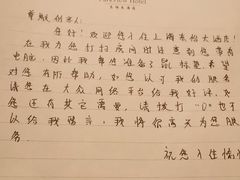 尊敬的客人:
您好!欢迎您入住上海东怡大酒店!
在我为您打扫房间时注意到您带有
电脑,因此我帮您准备了鼠标垫希望
对您有所帮助,如您认可我的服务
请您在大众网络平台给我好评,如
您还有其它需要,请拨打"0"也可
以给我留言,我将很高兴为您服
务
祝您入住愉快